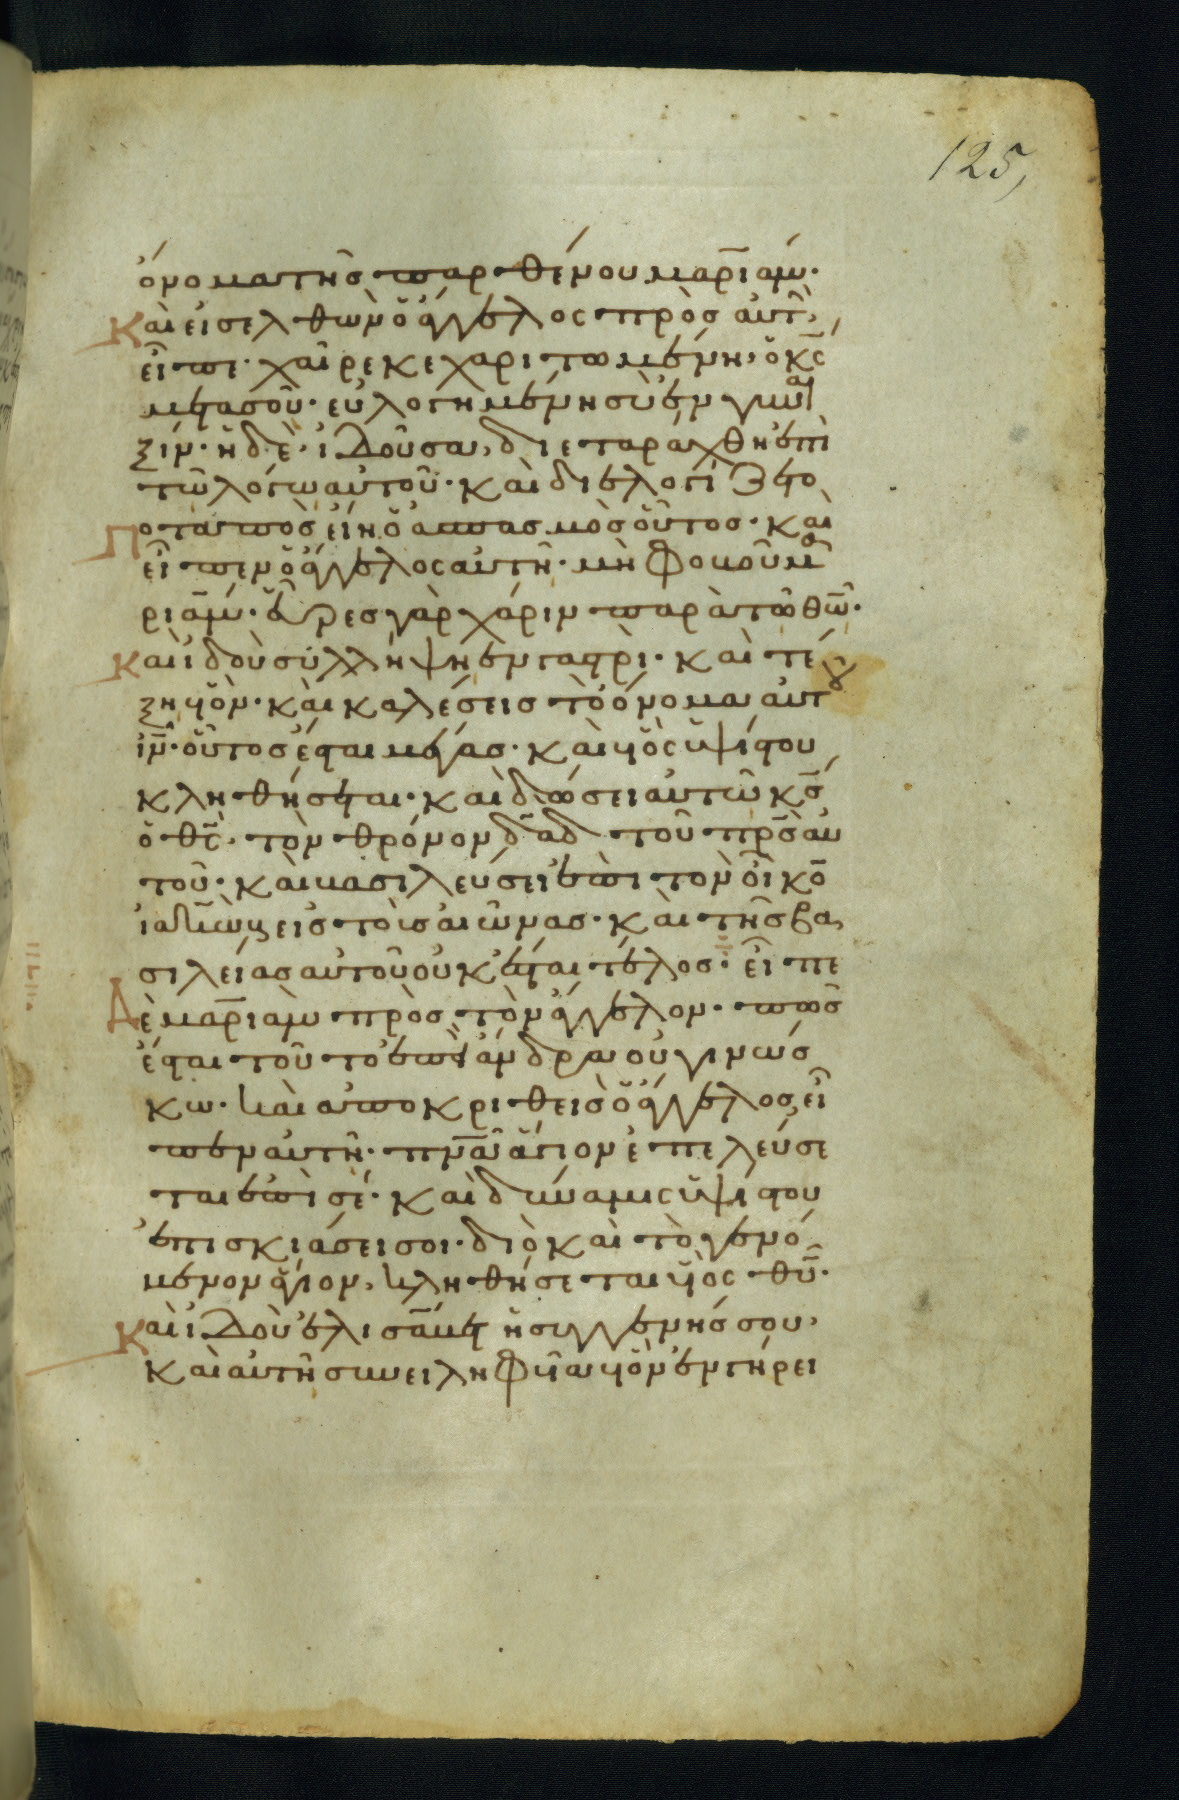 125,
ὄνομα τῆς παρθένου μαριάμ·
Καὶ εἰσελθὼν ὁ ἄγγελος πρὸς αὐτὴν,
εἶπε· χαῖρε κεχαριτωμένη· ὁ κς
μετὰ σοῦ· εὐλογημένη σὺ ἐν γυναι
ξίν· ἡ δὲ ἰδοῦσα, διεταράχθη ἐπὶ
τῶ λόγω αὐτοῦ· καὶ διελογίζετο
Ποταπὸς εἴη ὁ ἀσπασμὸς οὗτος· καὶ
εἶπεν ὁ ἄγγελος αὐτῆ· μὴ φοβοῦ μα
ριάμ· εὗρες γὰρ χάριν παρὰ τῶ θω·
Καὶ ἰδοὺ συλλήψη ἐν γαστρὶ· καὶ τέ
ξη υἱὸν· καὶ καλέσεις τὸ ὄνομα αὐτοῦ
ιν· οὗτος ἔσται μέγας· καὶ υἱὸς ὑψίστου
κληθήσεται· καὶ δώσει αὐτῶ κς
ὁ θς, τὸν θρόνον δαδ τοῦ πρς αὐ
τοῦ· καὶ βασιλεύσει ἐπὶ τὸν οἶκον
ἰακὼβ εἰς τοὺς αἰῶνας· καὶ τῆς βα
σιλείας αὐτοῦ οὐκ ἔσται τέλος· εἶπε
Δὲ μαριὰμ πρὸς τὸν ἄγγελον· πῶς
ἔσται τοῦτο ἐπεὶ ἄνδρα οὐ γινώσ
κω· καὶ ἀποκριθεὶς ὁ ἄγγελος εἶ
πεν αὐτῆ· πνα ἅγιον ἐπελεύσε
ται ἐπὶ σέ· καὶ δύναμις ὑψίστου
ἐπισκιάσει σοι· διὸ καὶ τὸ γεννό
μενον ἅγιον, κληθήσεται υἱὸς θυ·
Καὶ ἰδοὺ ἐλισάβετ ἡ συγγενής σου,
καὶ αὐτὴ συνειληφυῖα υἱὸν ἐν γήρει